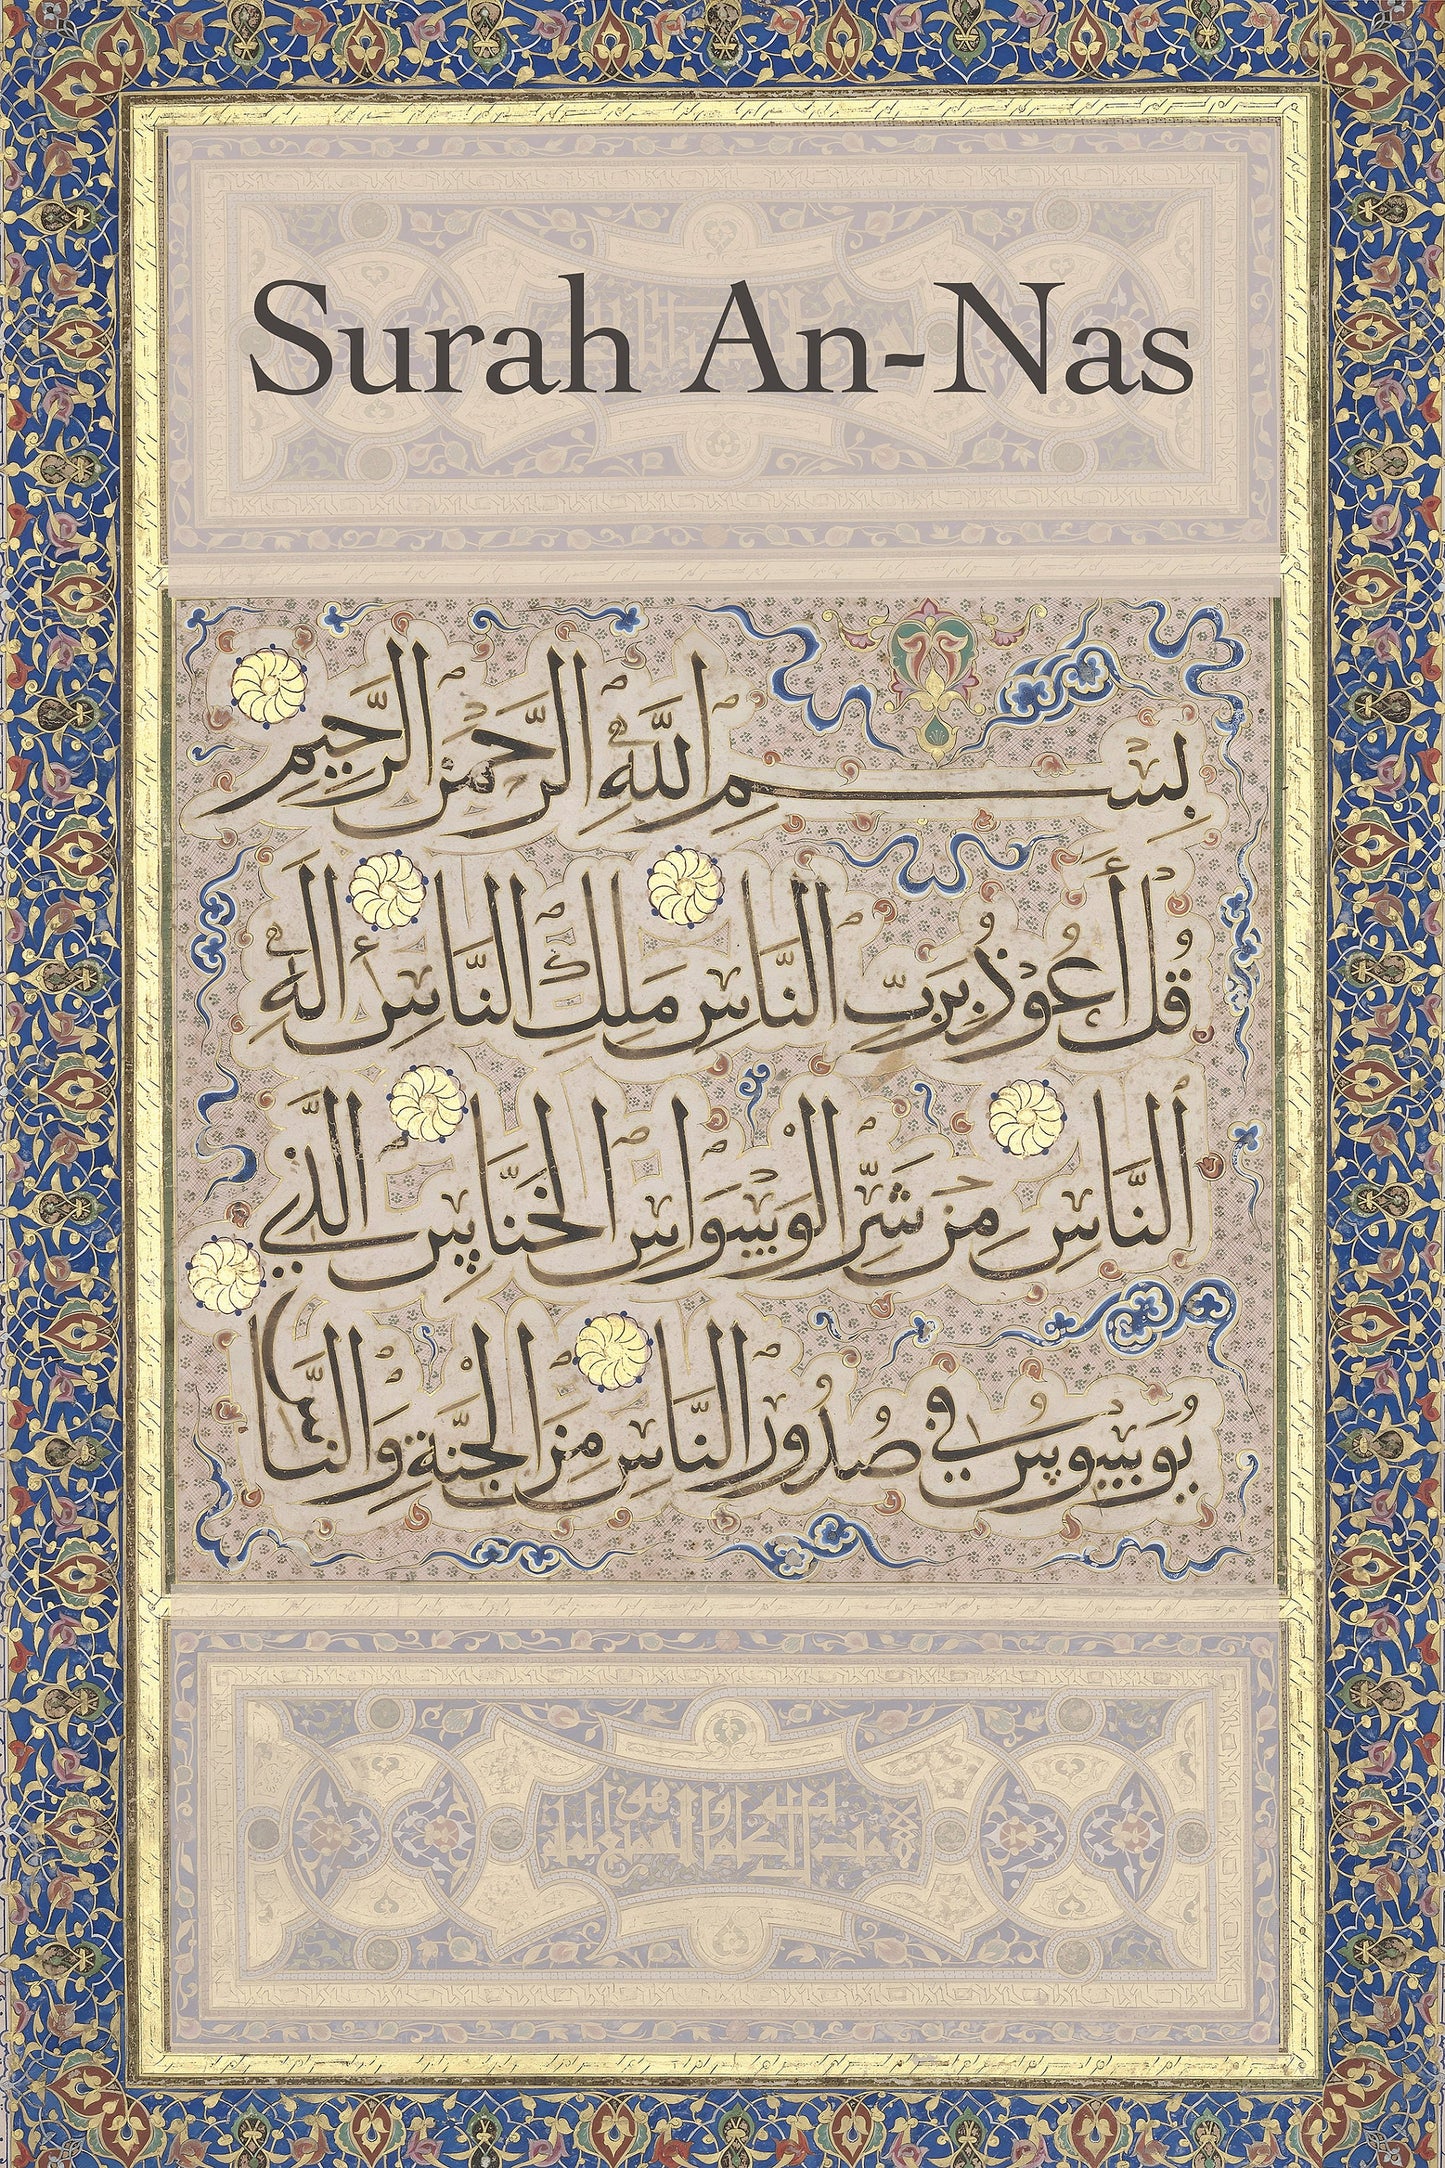 Surah An-Nas
بِسْمِ اللَّهِ الرَّحْمَٰنِ الرَّحِيمِ
قُلْ أَعُوذُ بِرَبِّ النَّاسِ مَلِكِ النَّاسِ إِلَٰهِ
النَّاسِ مِنْ شَرِّ الْوَسْوَاسِ الْخَنَّاسِ الَّذِي
يُوَسْوِسُ فِي صُدُورِ النَّاسِ مِنَ الْجِنَّةِ وَالنَّاسِ